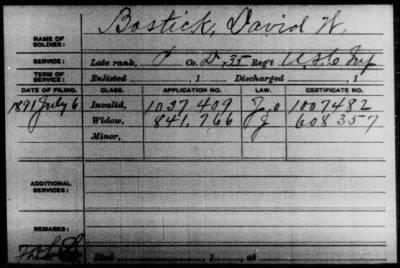 NAME OF SOLDIER: Bostick, David W.
SERVICE: Late rank, P Co. D, 35 Reg't U.S.C. Inf
TERM OF SERVICE: Enlisted , 1 Discharged , 1
DATE OF FILING. CLASS. APPLICATION NO. LAW. CERTIFICATE NO.
1891 July 6 Invalid, 1037409 1007482
Widow, 841,766 608357
Minor,
ADDITIONAL SERVICES:
REMARKS:
Died , 1 , at